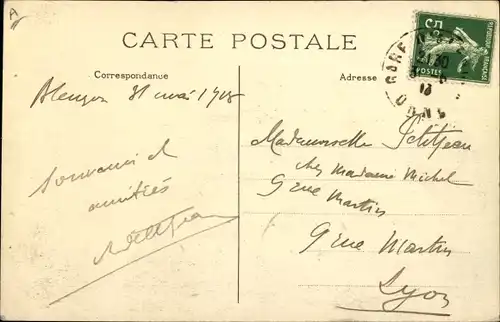 A
CARTE POSTALE
Correspondance
Adresse
5c
POSTES
REPUBLIQUE FRANÇAISE
GARE
ORNE
Alençon 31 mai 19
Souvenir et
amitiés
Mademoiselle Petitjean
chez Madame Michel
9 rue Martin
9 rue Martin
Lyon